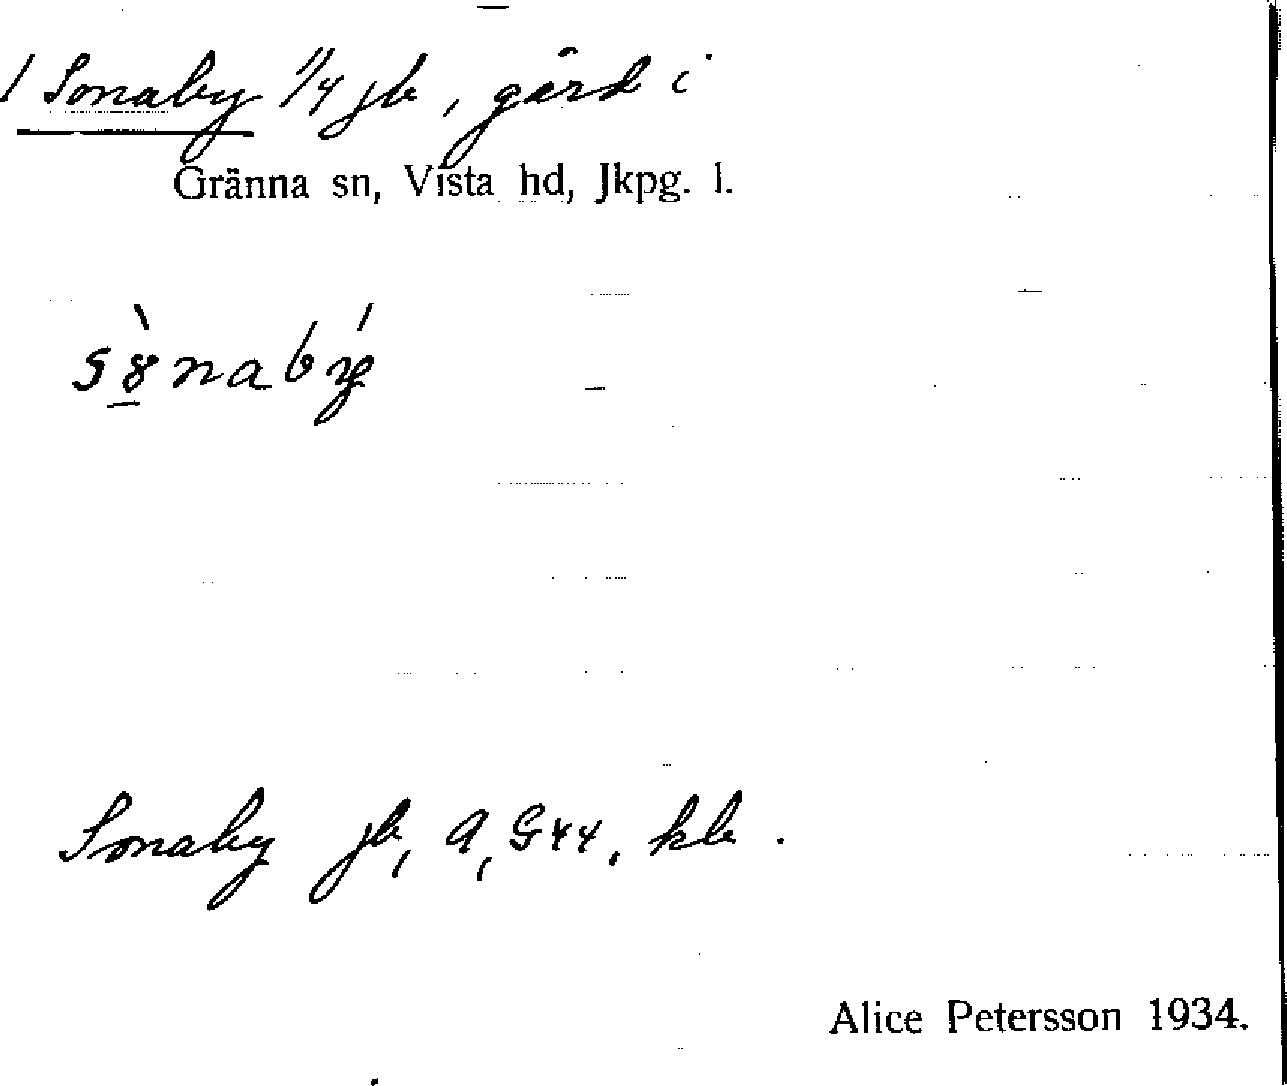 1 Sonaby 1/4 jb, gård i
Gränna sn, Vista hd, Jkpg. l.
Sonaby jb, A, G44, kb.
Alice Petersson 1934.